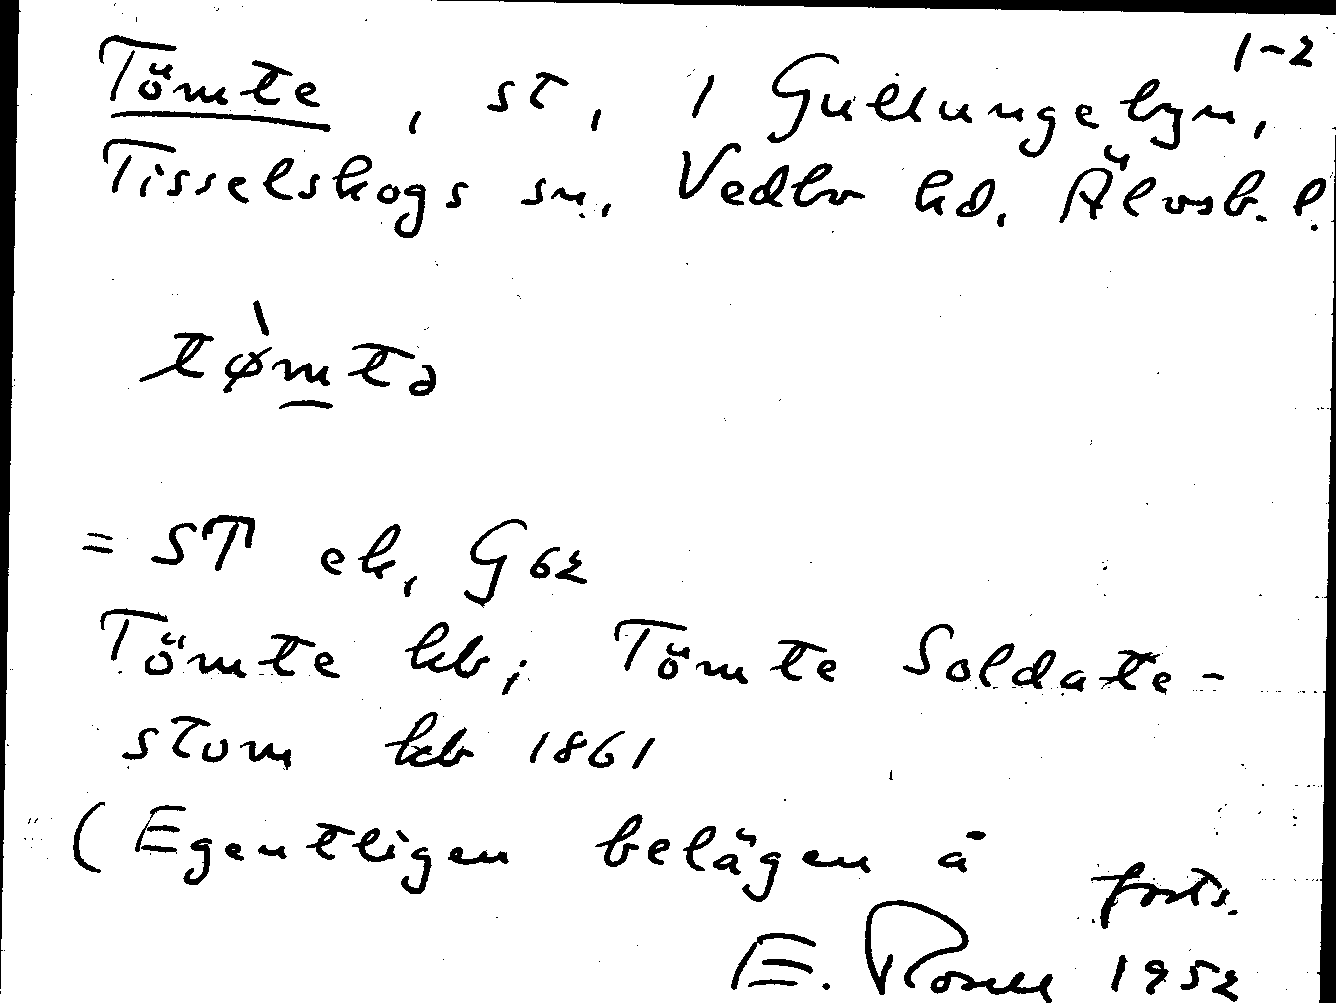 1-2
Tömte, st, i Gullungebyn,
Tisselskogs sn, Vedbo hd. Älvsb. l.
tø̀mtə
= ST ek, G62
Tömte kb; Tömte Soldate-
stom kb 1861
(Egentligen belägen å
forts.
E. Rosell 1952